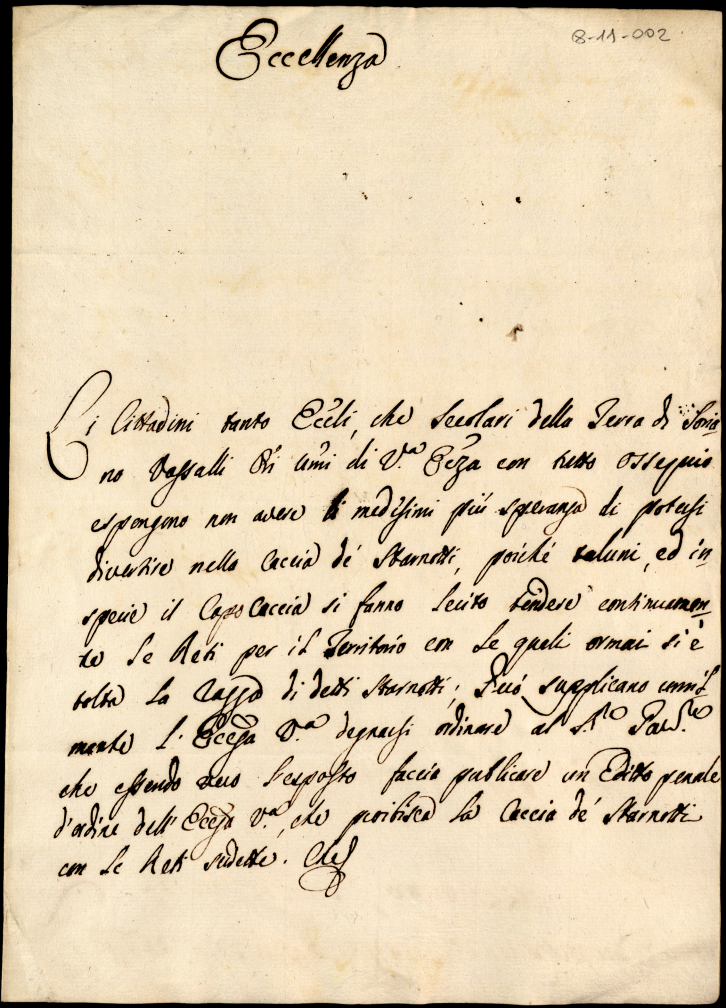 8-11-002
Eccellenza
Li Cittadini tanto Ecc̃li, che Secolari della Terra di Soria-
no Vassalli Or̃i um̃i di V.ª Ecc̃za con tutto ossequio
espongono non avere li medesimi più speranza di potersi
divertire nella Caccia de' Starnotti, poiché taluni, ed in
specie il Capo Caccia si fanno lecito tendere continuamen-
te le Reti per il Territorio con le quali ormai si è
tolta la Razza di detti Starnotti; Però supplicano umil-
mente l'Ecc̃za V.ª degnarsi ordinare al S.r
che essendo vero l'esposto faccia publicare un Editto penale
d'ordine dell'Ecc̃za V.ª, che proibisca la Caccia de' Starnotti
con le Reti sudette. Che